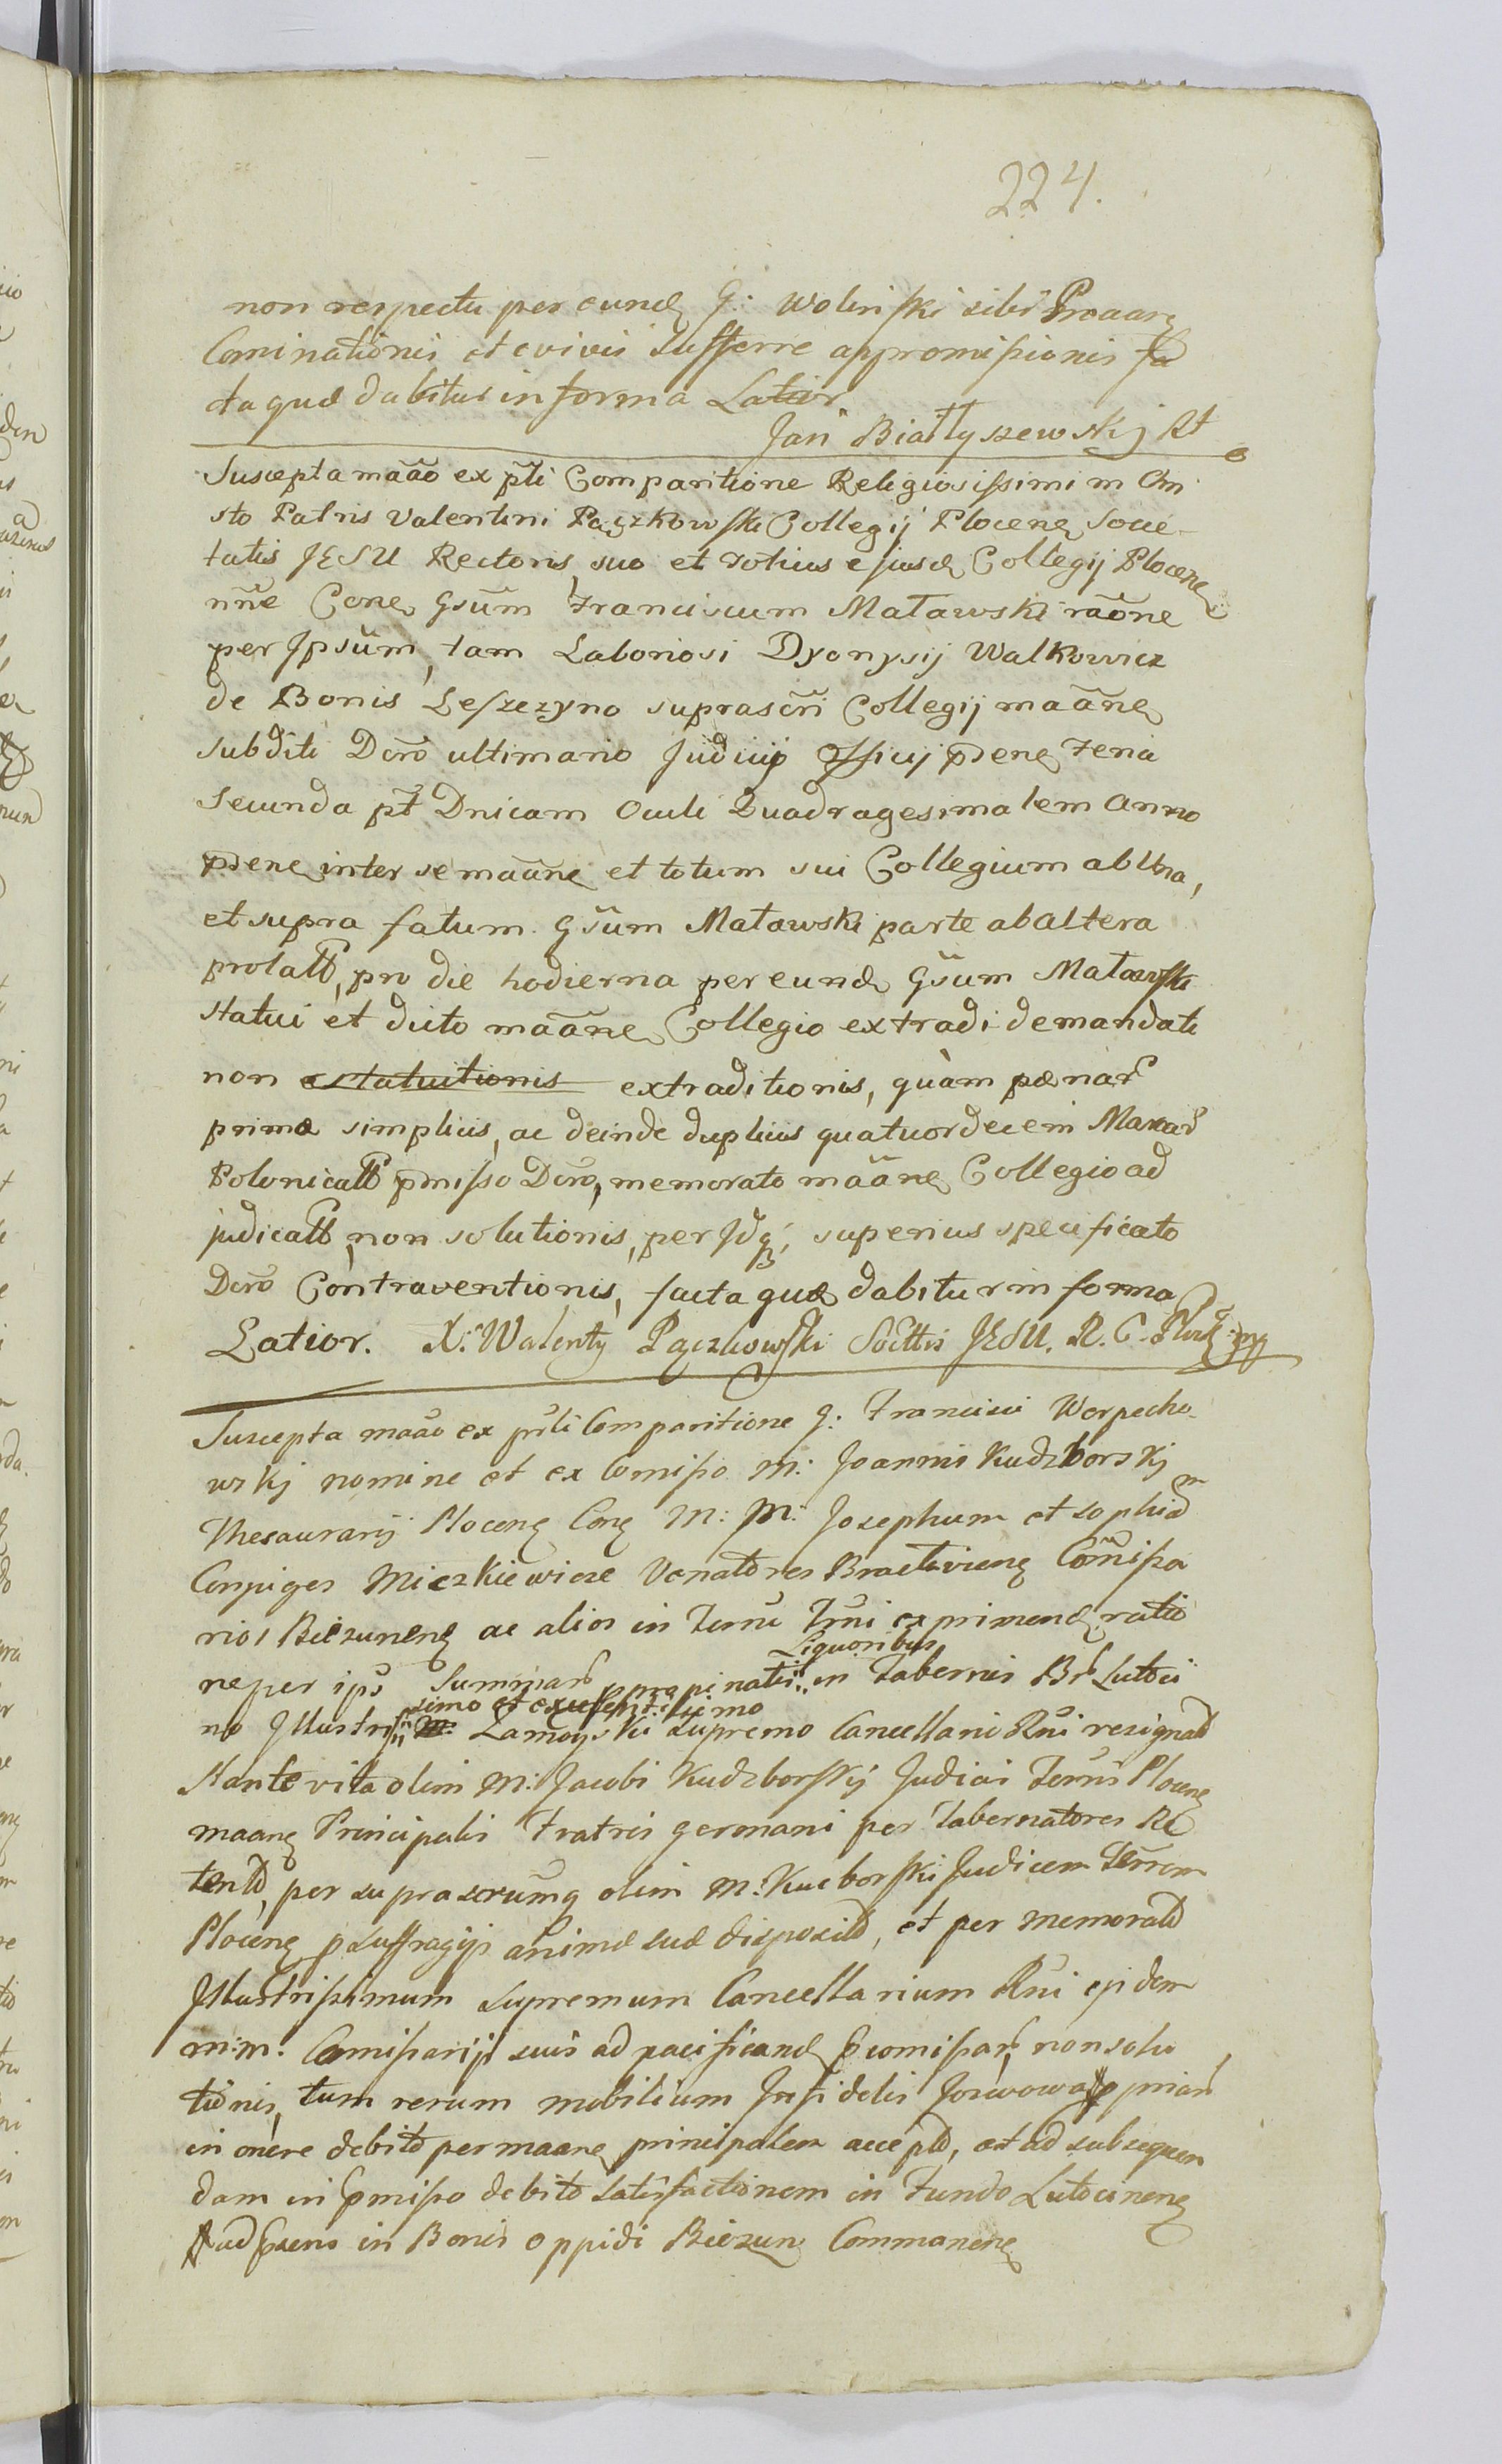 224.
non respectu per eund G: Wolinski sibi
Cominationis et evivis sufferre appromissionis fa
cta quæ dabitur in forma Latior
Jan Białłyszewskj
Suscepta maão ex pñti Comparitione Religiosissimi in Chri
sto Patris Valentini Pączkowski Collegij Plocene Socie-
tatis JESU Rectoris, suo et totius ejusd Collegij Plocene
nñe Cone Gsũm Franciscum Małowski raõne
per Ipsũm, tam Laboriosi Dyonysij Walkowicz
de Bonis Leszczyno suprascrĩ Collegij maãne
subditi Dcrõ ultimario Judicij Officij pñene Feria
Secunda pt Dnicam Oculi Quadragesimalem Anno
pñene inter se maãne et totum sui Collegium ab Una,
et supra fatum Gsũm Małowski parte ab altera
prolatt, pro die hodierna per eund Gsũm Małowski
statui et dicto maãne Collegio extradi demandati
non statuitionis extraditionis, quàm pænar
primæ simplicis, ac deinde duplicis quatuordecem Marcar
Polonicalt pmisso Dcrõ, memorato maãne Collegio ad
judicatt, non solutionis, per Idq;, superius specificato
Dcrõ Contraventionis, facta quæ dabitur in forma
Latior. X: Walenty Pączkowski Socttis JESU. R. C. Płock: mp
Suscepta maão ex pñti Comparitione G: Francisci Werpecho-
wskj nomine et ex Comisso M: Joannis Kudzborskj
Thesaurarij Plocene Cone M: M: Josephum et Sophiam
Conjuges Mieczkiewicze Venatores Braclaviene Commissa
rios Biezunene ac alios in Termi Tmi exprimend ratio
Liquoribus
ne per ips Summar propinatis in Tabernis Br Lutoci
simo et excellentissimo
no Illustris M: Zamoyski supremo Cancellario Rni resignatt
stante vita olim M: Jacobi Kudzborskij Judicis Terris Plocene
maane Principalis Fratris germani per Tabernatores Re
tentt, per suprascrumq olim M: Kuczborski Judicem Terrem
Plocene p suffragijs animæ suæ disposittt, et per memoratt
Illustrissimum Supremum Cancellarium Rni ejsdem
m:m: Comissarijs suis ad pacificand comissar, non solu
tionis, tum rerum mobilium Infidelis pprian
in onere debito per maane principalem acceptt, et ad subsequen
dam in pmisso debito satisfactionem in Fundo Lutocinene
in Bonis oppidi Biezun Commanene